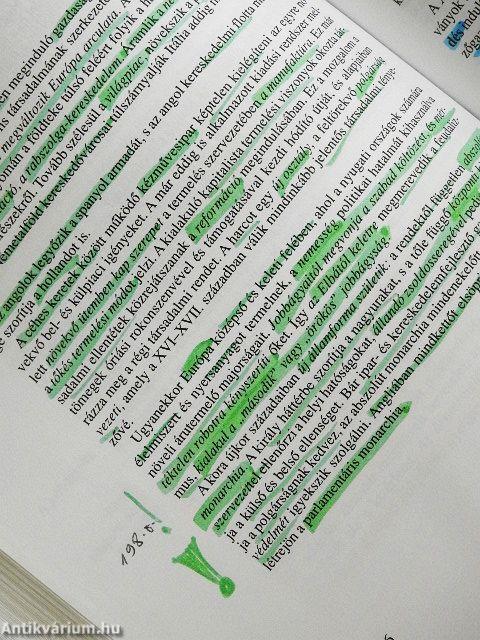 en meginduló gazdasá
s társadalmának szerkezetét
megváltozik Európa arculata. A
omán a földteke
a rabszolga-kereskedelem. Áramlik a ne
világpiac, növekszik a p
részekről. Tovább szélesül a
enetkező kereskedővárosait túlszárnyalják Itália eddig m
z angolok legyőzik a spanyol armadát, s az angol kereskedelmi flotta me
ge szorítja a hollandot is.
A céhes keretek között működő kézművesipar képtelen kielégíteni az egyre nö-
vekvő bel- és külpiaci igényeket. A már eddig is alkalmazott kiadási rendszer mel-
lett növekvő ütemben kap szerepet a termelés szervezetében a manufaktúra. Ez már
a tőkés termelési módot jelzi. A kialakuló kapitalista termelési viszonyok okozta tár-
sadalmi ellentétek közrejátszanak a reformáció megindulásában. Ez a mozgalom a
tömegek óriási rokonszenvével és támogatásával kezdi hódító útját, és alapjaiban
rázza meg a régi társadalmi rendet. A harcot egy új osztály, a feltörekvő polgárság
vezeti, amely a XVI–XVII. században válik mindinkább jelentős társadalmi ténye-
zővé.
Ugyanekkor Európa középső és keleti felében, ahol a nyugati országok számára
élelmiszert és nyersanyagot termelnek, a nemesség politikai hatalmát kihasználva
növeli árutermelő majorságait, jobbágyától megvonja a szabad költözést, és mér-
téktelen robotra kényszeríti őket. Így az Elbától keletre megmerevedik a feudaliz-
mus, kialakul a „második" vagy „örökös" jobbágyság.
A kora újkor századaiban új államforma születik: a rendektől független abszolú
monarchia. A király háttérbe szorítja a nagyurakat, s a tőle függő központi
szervezettel ellenőrzi a helyi hatóságokat, állandó zsoldosseregével pe
ja a külső és belső ellenséget. Bár ipar- és kereskedelemfejlesztő
ja a polgárságnak kedvez, az abszolút monarchia mindenekelőtt
védelmét igyekszik szolgálni. Angliában mindkettőt elsöp
létrejön a parlamentáris monarchia.
198. o. !
A
ványok
dés ind
zőgaz
6
Antikvárium.hu